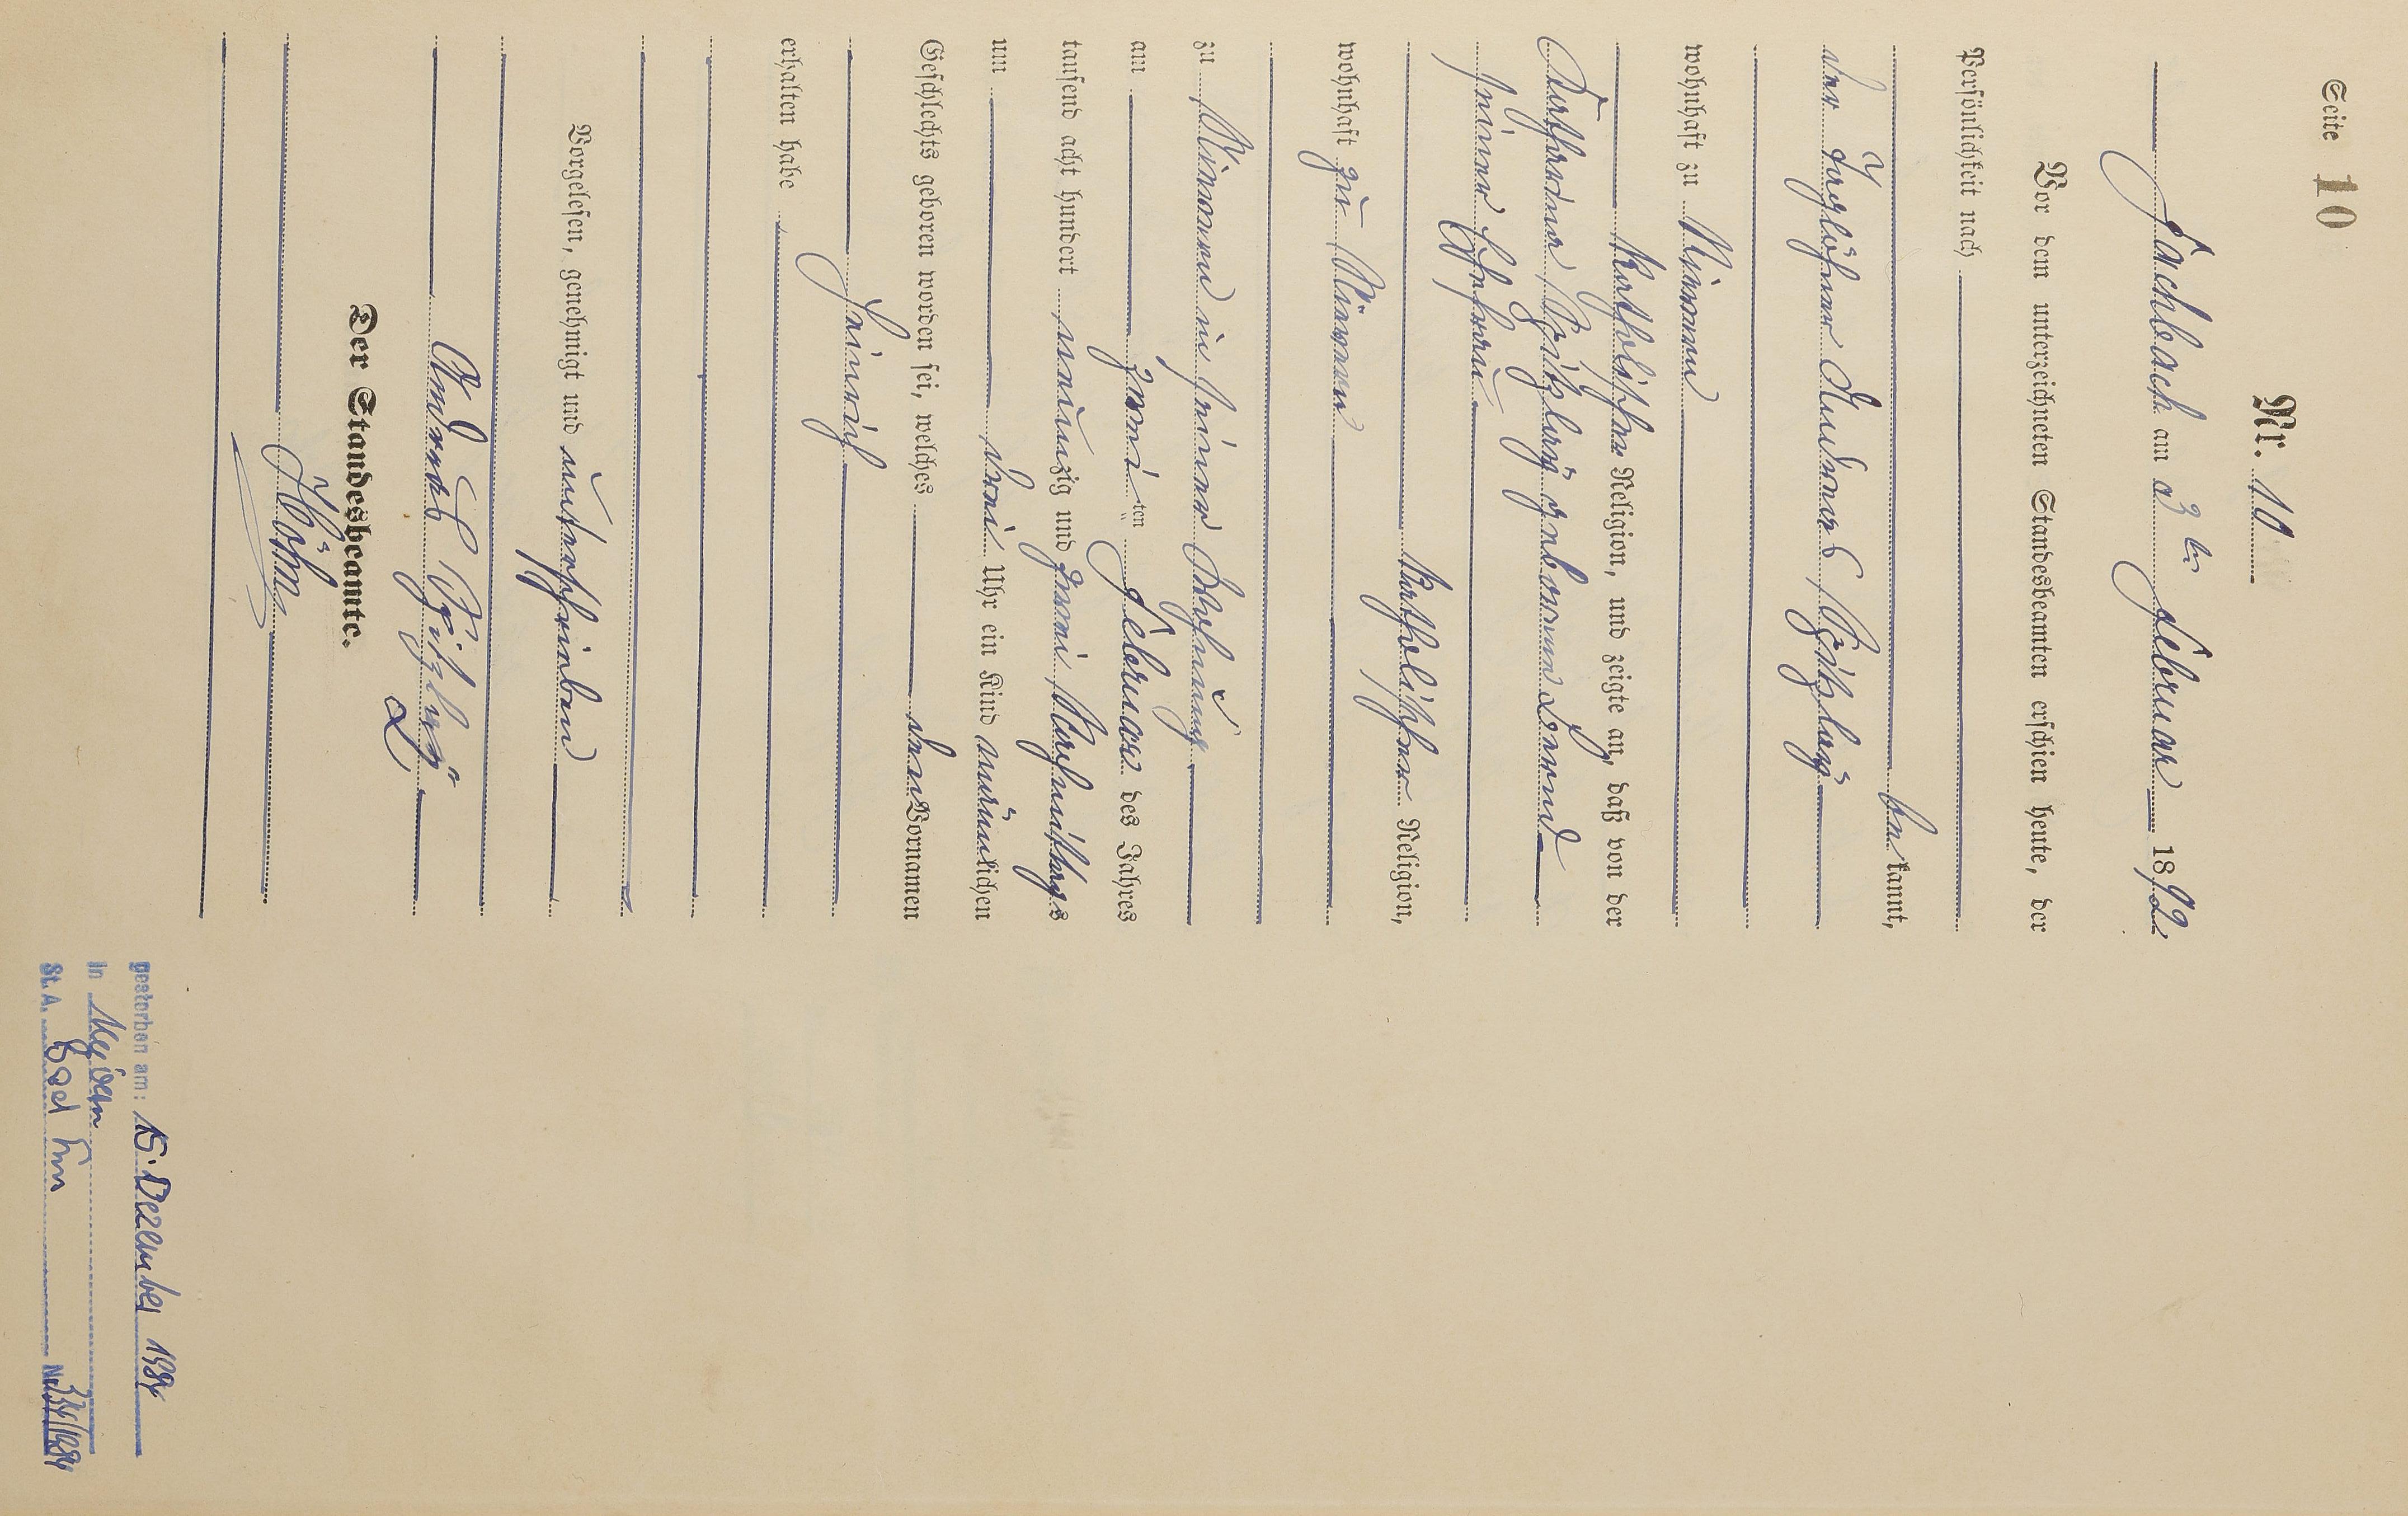 Seite 10
Nr. 10
Fachbach am 3ten Februar 1892
Vor dem unterzeichneten Standesbeamten erschien heute, der
Persönlichkeit nach
bekannt,
der Taglöhner Andreas
wohnhaft zu Nievern
katholischer Religion, und zeigte an, daß von der
Katharina geborene
seiner Ehefrau
katholischer Religion,
wohnhaft zu Nievern
zu Nievern in seiner Wohnung
am zweiten Februar des Jahres
tausend acht hundert neunzig und zwei Nachmittags
um drei Uhr ein Kind männlichen
Geschlechts geboren worden sei, welches den Vornamen
Heinrich
erhalten habe
Vorgelesen, genehmigt und unterschrieben
Andreas
Der Standesbeamte.
Höhn
gestorben am: 15. Dezember 1984
in Nievern
St.A. Bad Ems Nr. 334/1984